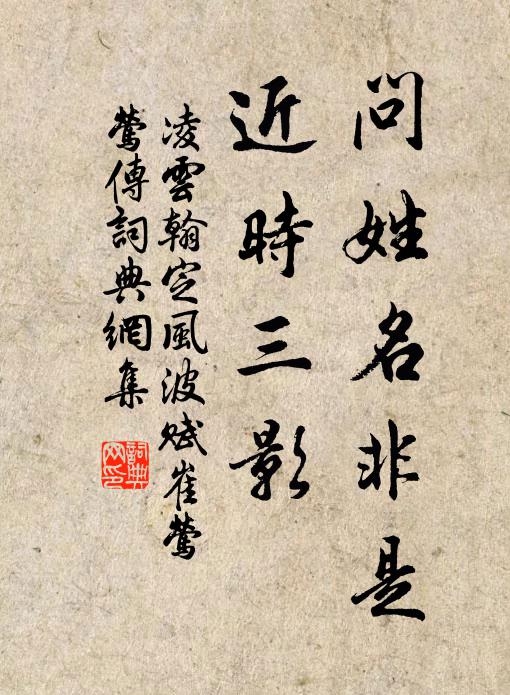 問姓名非是
近時三影
凌雲翰定風波賦崔鶯
鶯傳詞典網集
詞典網印